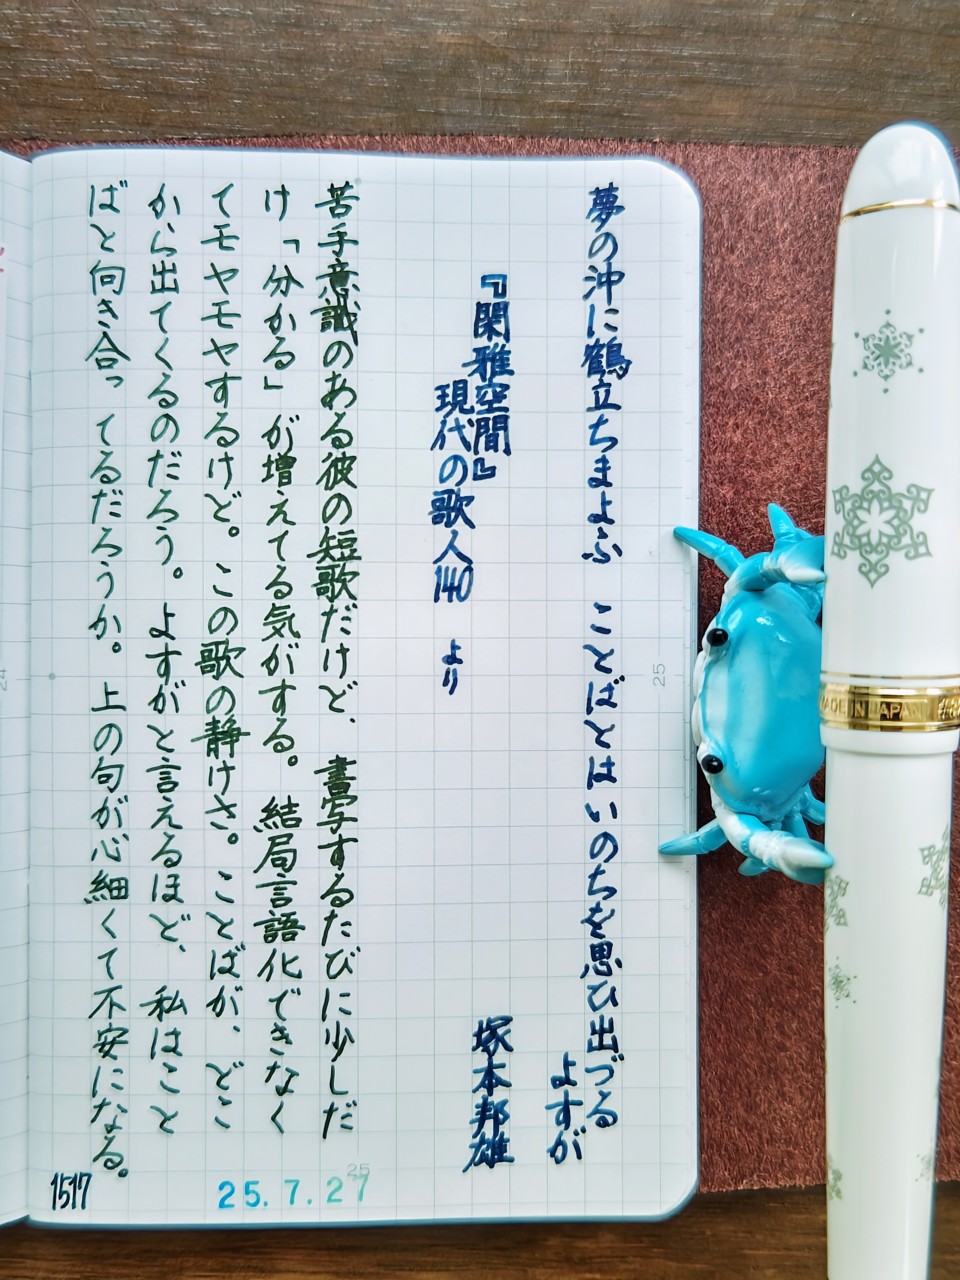 夢の沖に鶴立ちまよふ　ことばとはいのちを思ひ出づる
よすが
『閑雅空間』
塚本邦雄
現代の歌人140　より
苦手意識のある彼の短歌だけど、書写するたびに少しだ
け「分かる」が増えてる気がする。結局言語化できなく
てモヤモヤするけど。この歌の静けさ。ことばが、どこ
から出てくるのだろう。よすがと言えるほど、私はこと
ばと向き合ってるだろうか。上の句が心細くて不安になる。
1517
25.7.27
25
25
24
MADE IN JAPAN